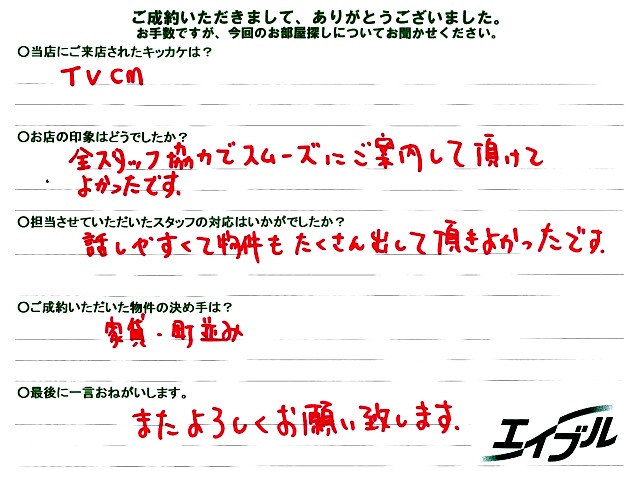 ご成約いただきまして、ありがとうございました。
お手数ですが、今回のお部屋探しについてお聞かせください。
○当店にご来店されたキッカケは？
TVCM
○お店の印象はどうでしたか？
全スタッフ協力でスムーズにご案内して頂けて
よかったです。
○担当させていただいたスタッフの対応はいかがでしたか？
話しやすくて物件もたくさん出して頂きよかったです。
○ご成約いただいた物件の決め手は？
家賃・町並み
○最後に一言おねがいします。
またよろしくお願い致します。
エイブル